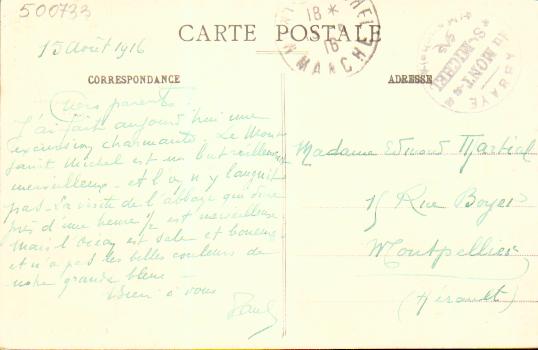 500733
CARTE POSTALE
18 *
16
MANCHE
ABBAYE DU MONT-St-MICHEL
15 Août 1916
CORRESPONDANCE
ADRESSE
Chers parents,
J'ai fait aujourd'hui une
excursion charmante. Le Mont
Saint Michel est un
merveilleux - et l'on n'y languit
pas. La visite de l'abbaye qui dure
près d'une heure 1/2 est merveilleuse
mais l'océan est sale et boueux
et n'a pas les belles couleurs de
notre grande bleue -
Bien à vous
Paul
Madame Edouard Martial
15 Rue Boyer
Montpellier
(Hérault)